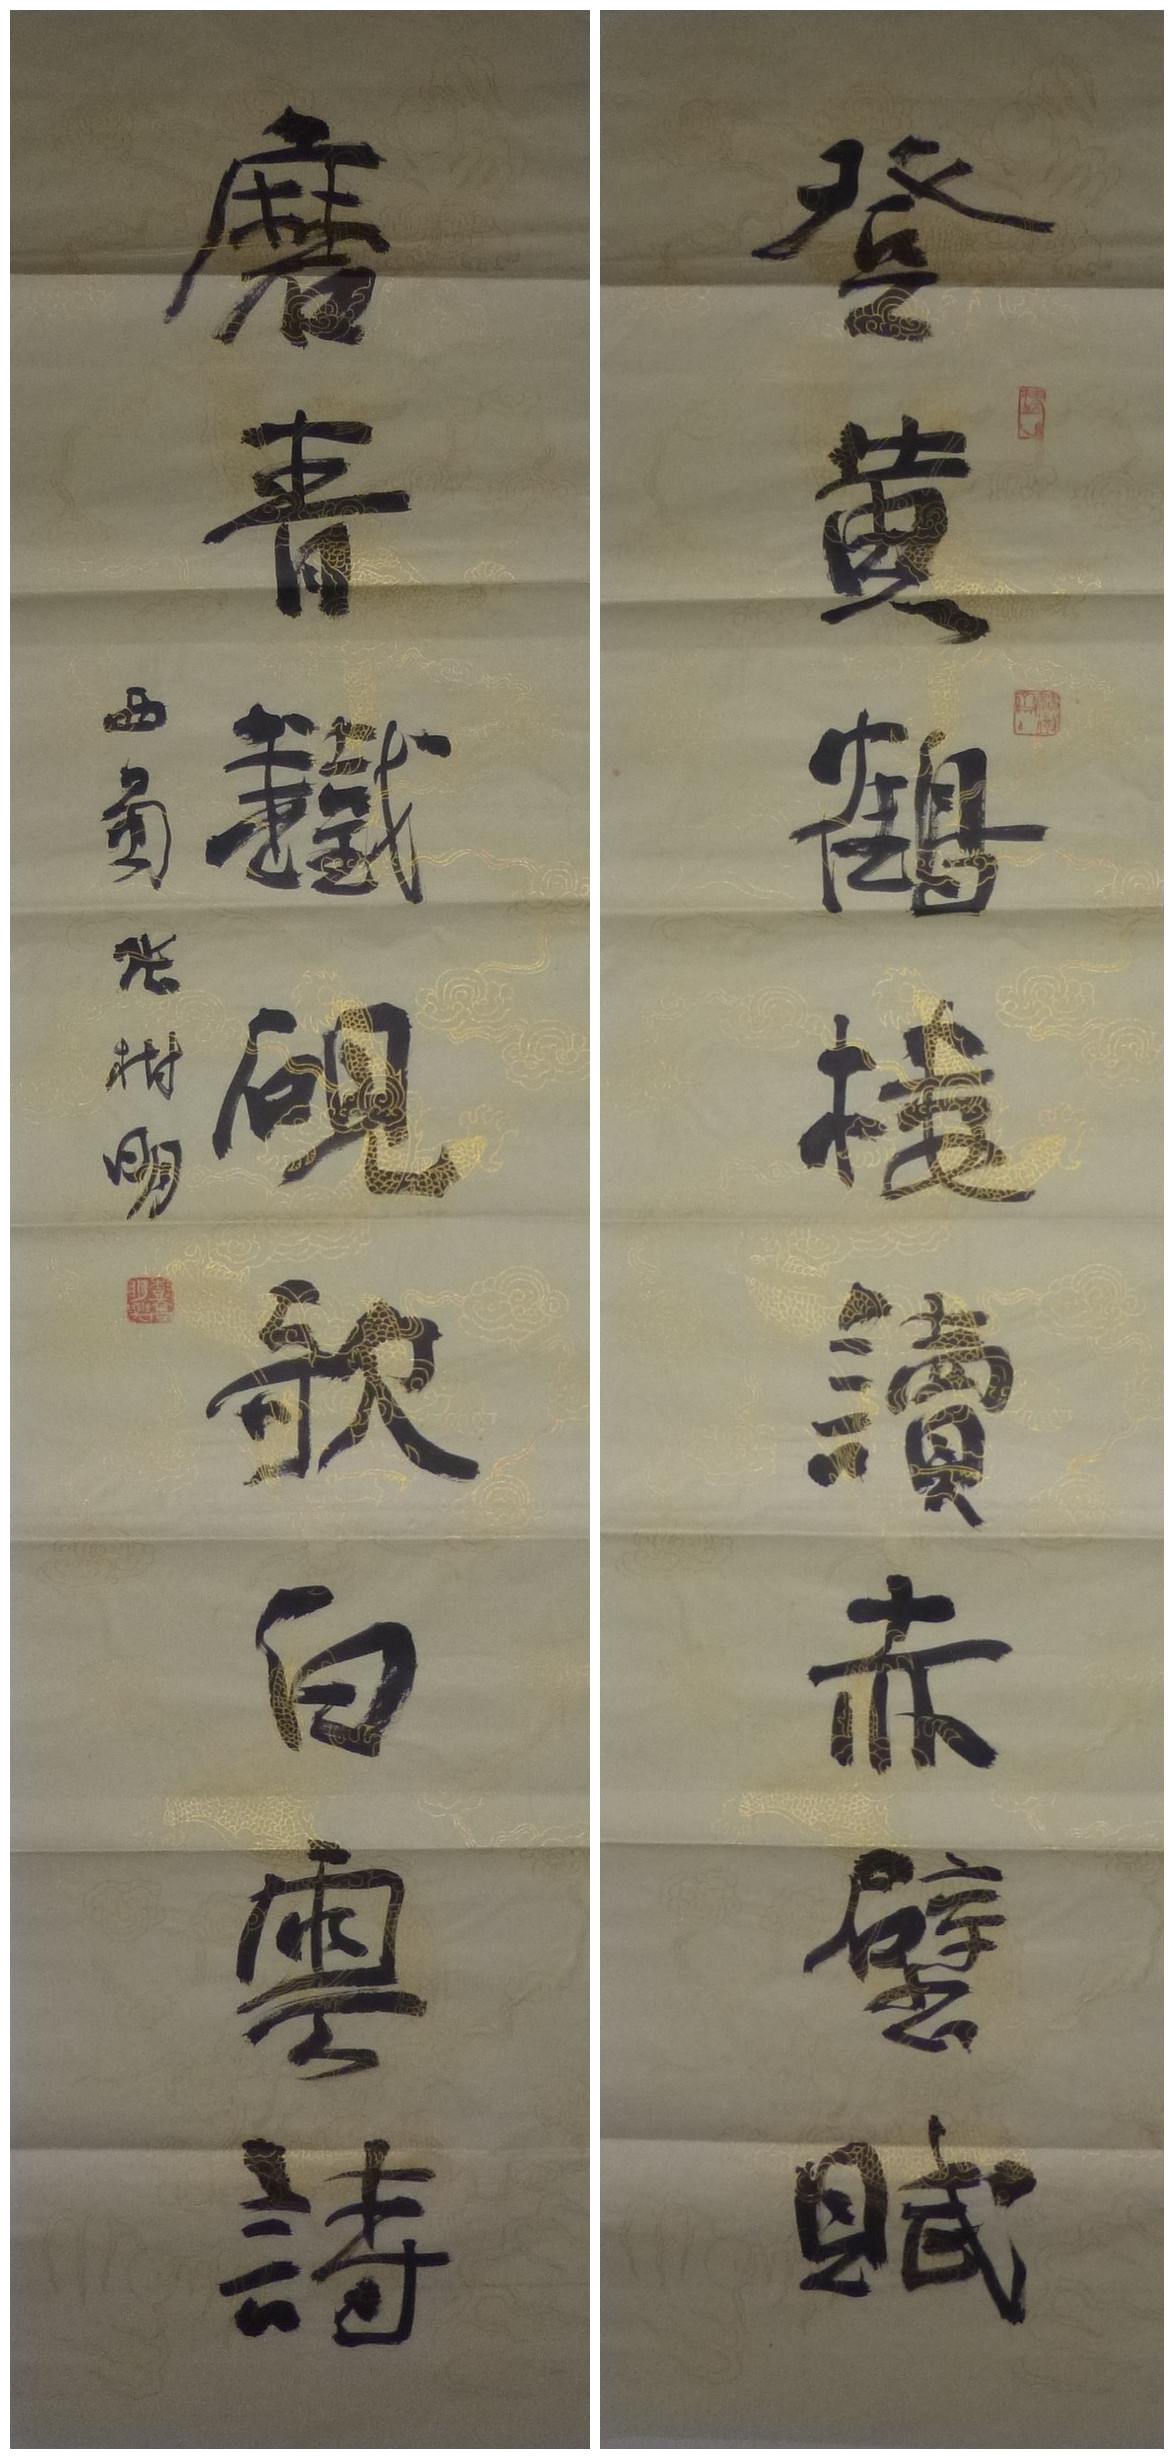 登黄鶴楼讀赤壁賦
磨青鐵硯歌白雲詩
西蜀張樹明